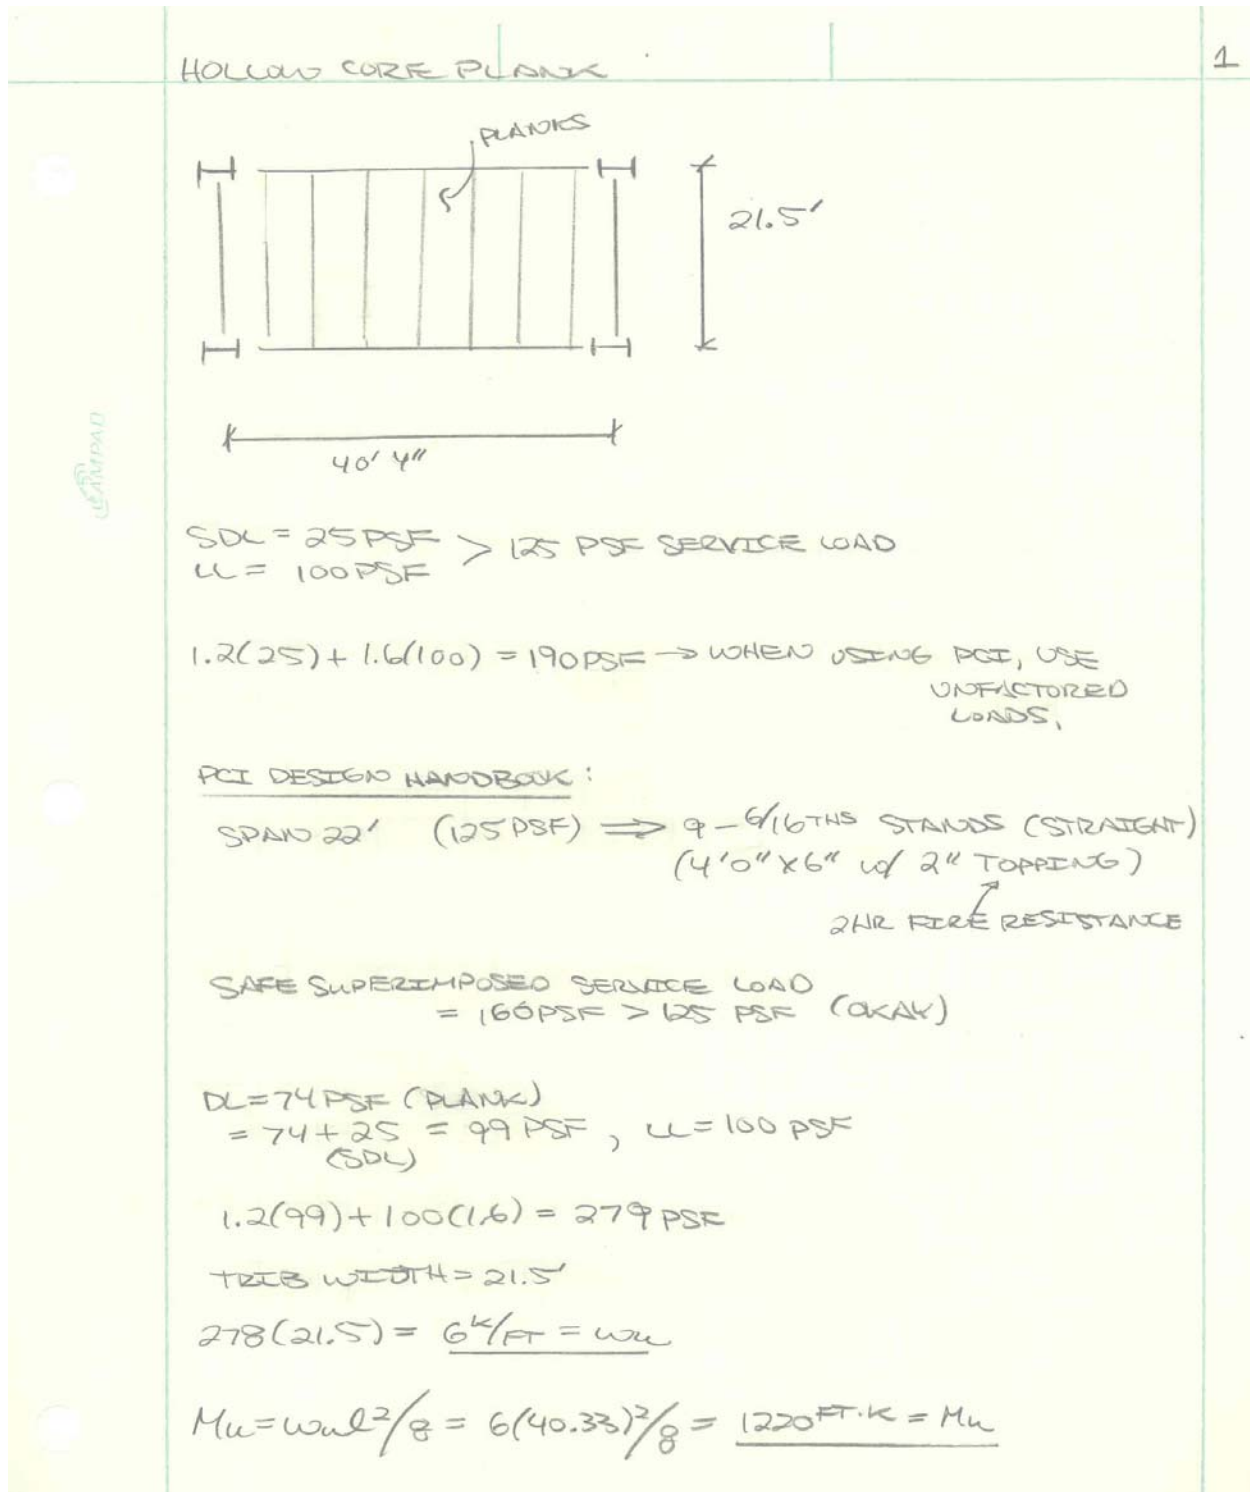 HOLLOW CORE PLANK
1
PLANKS
21.5'
40' 4"
CAMPAD
SDL = 25 PSF > 125 PSF SERVICE LOAD
LL = 100 PSF
1.2(25) + 1.6(100) = 190 PSF → WHEN USING PCI, USE
UNFACTORED
LOADS.
PCI DESIGN HANDBOOK:
SPAN 22' (125 PSF) ⇒ 9 - 6/16THS STANDS (STRAIGHT)
(4'0" X 6" w/ 2" TOPPING)
2HR FIRE RESISTANCE
SAFE SUPERIMPOSED SERVICE LOAD
= 160 PSF > 125 PSF (OKAY)
DL = 74 PSF (PLANK)
= 74 + 25 = 99 PSF, LL = 100 PSF
(SDL)
1.2(99) + 100(1.6) = 279 PSF
TRIB WIDTH = 21.5'
278(21.5) = 6 K/FT = wu
Mu = wul²/8 = 6(40.33)²/8 = 1220 FT·K = Mu